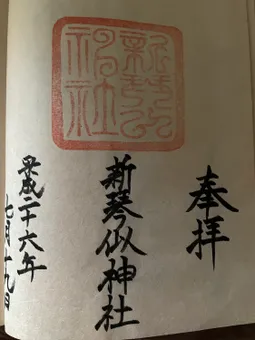 奉拝
新琴似神社
平成二十六年
七月十九日